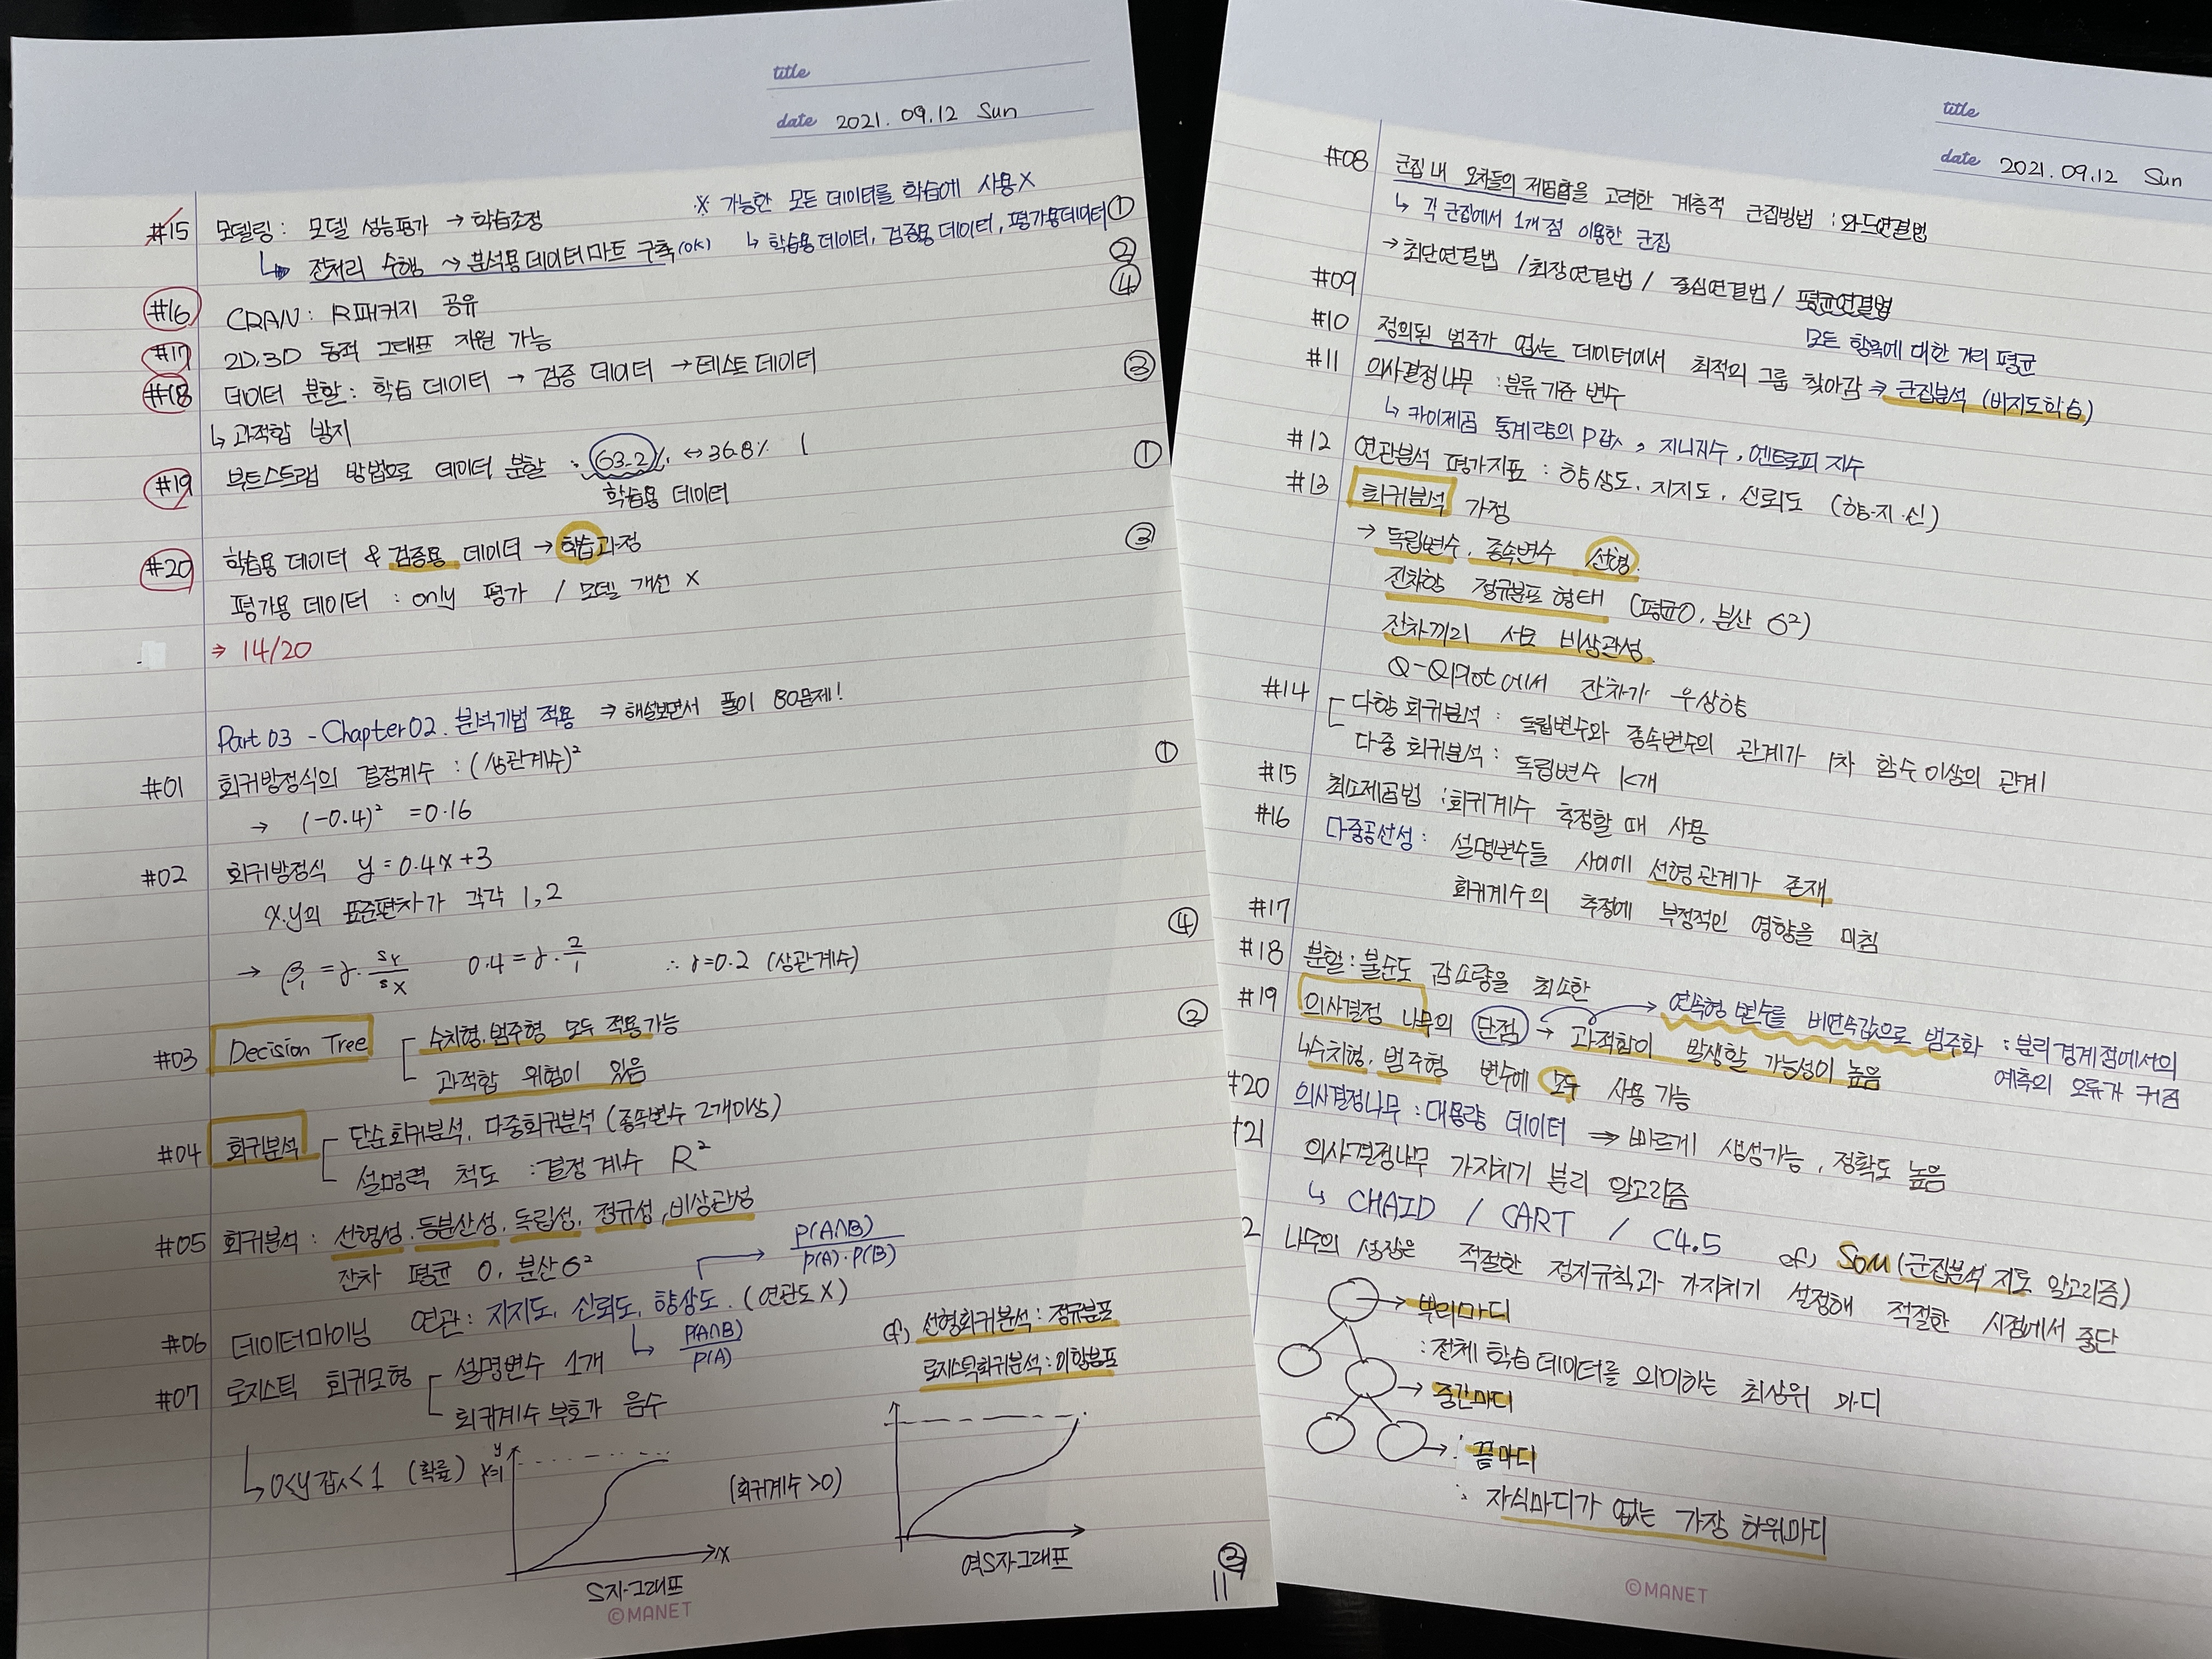 title
date 2021. 09. 12 Sun
#15 모델링 : 모델 성능평가 → 학습조정 ※ 가능한 모든 데이터를 학습에 사용 X ①
↳ 전처리 수행 → 분석용 데이터 마트 구축 (OK) ↳ 학습용 데이터, 검증용 데이터, 평가용 데이터 ②
#16 CRAN : R패키지 공유 ④
#17 2D, 3D 동적 그래프 지원 가능
#18 데이터 분할 : 학습 데이터 → 검증 데이터 → 테스트 데이터 ③
↳ 과적합 방지
#19 부트스트랩 방법으로 데이터 분할 : 63.2% ↔ 36.8% ①
학습용 데이터
#20 학습용 데이터 & 검증용 데이터 → 학습과정 ③
평가용 데이터 : only 평가 / 모델 개선 X
⇒ 14/20
Part 03 - Chapter 02. 분석기법 적용 ⇒ 해설보면서 풀이 80문제!
#01 회귀방정식의 결정계수 : (상관계수)² ①
→ (-0.4)² = 0.16
#02 회귀방정식 y = 0.4x+3
x,y의 표준편차가 각각 1, 2 ④
→ β₁ = r · sY/sX 0.4 = r · 2/1 ∴ r=0.2 (상관계수)
#03 Decision Tree 수치형, 범주형 모두 적용가능 ②
과적합 위험이 있음
#04 회귀분석 단순회귀분석, 다중회귀분석 (종속변수 2개이상)
설명력 척도 : 결정계수 R²
#05 회귀분석 : 선형성, 등분산성, 독립성, 정규성, 비상관성
잔차 평균 0, 분산 σ² → P(A∩B)/P(A)·P(B)
#06 데이터마이닝 연관 : 지지도, 신뢰도, 향상도. (연관도 X)
↳ P(A∩B)/P(A)
cf) 선형회귀분석 : 정규분포
로지스틱회귀분석 : 이항분포
#07 로지스틱 회귀모형 설명변수 1개
회귀계수 부호가 음수
↳ 0<y값<1 (확률) y (회귀계수 >0)
x
S자 그래프 역S자 그래프
③
11
©MANET
title
date 2021. 09. 12 Sun
#08 군집 내 오차들의 제곱합을 고려한 계층적 군집방법 : 와드연결법
↳ 각 군집에서 1개 점 이용한 군집
#09 → 최단연결법 / 최장연결법 / 중심연결법 / 평균연결법
모든 항목에 대한 거리 평균
#10 정의된 범주가 없는 데이터에서 최적의 그룹 찾아감 ⇒ 군집분석 (비지도학습)
#11 의사결정나무 : 분류 기준 변수
↳ 카이제곱 통계량의 P값, 지니지수, 엔트로피 지수
#12 연관분석 평가지표 : 향상도, 지지도, 신뢰도 (향·지·신)
#13 회귀분석 가정
→ 독립변수, 종속변수 선형.
잔차항 정규분포 형태 (평균0, 분산 σ²)
잔차끼리 서로 비상관성.
Q-Qplot에서 잔차가 우상향
#14 다항 회귀분석 : 독립변수와 종속변수의 관계가 1차 함수 이상의 관계
다중 회귀분석 : 독립변수 K개
#15 최소제곱법 : 회귀계수 추정할 때 사용
#16 다중공선성 : 설명변수들 사이에 선형관계가 존재
회귀계수의 추정에 부정적인 영향을 미침
#17
#18 분할 : 불순도 감소량을 최소한
#19 의사결정 나무의 단점 → 과적합이 발생할 가능성이 높음
→ 연속형 변수를 비연속값으로 범주화 : 분리 경계점에서의
예측의 오류가 커짐
↳ 수치형, 범주형 변수에 모두 사용 가능
#20 의사결정나무 : 대용량 데이터 ⇒ 빠르게 생성가능, 정확도 높음
#21 의사결정나무 가지치기 분리 알고리즘
↳ CHAID / CART / C4.5 cf) SOM (군집분석 지도 알고리즘)
2 나무의 성장은 적절한 정지규칙과 가지치기 설정해 적절한 시점에서 중단
→ 뿌리마디
: 전체 학습 데이터를 의미하는 최상위 마디
→ 중간마디
→ 끝마디
: 자식마디가 없는 가장 하위마디
©MANET